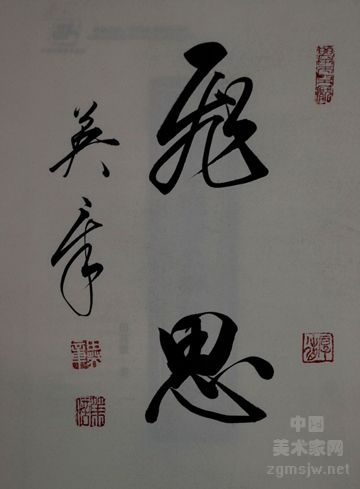 飛思
英章
中国
美术家网
zgmsjw.net